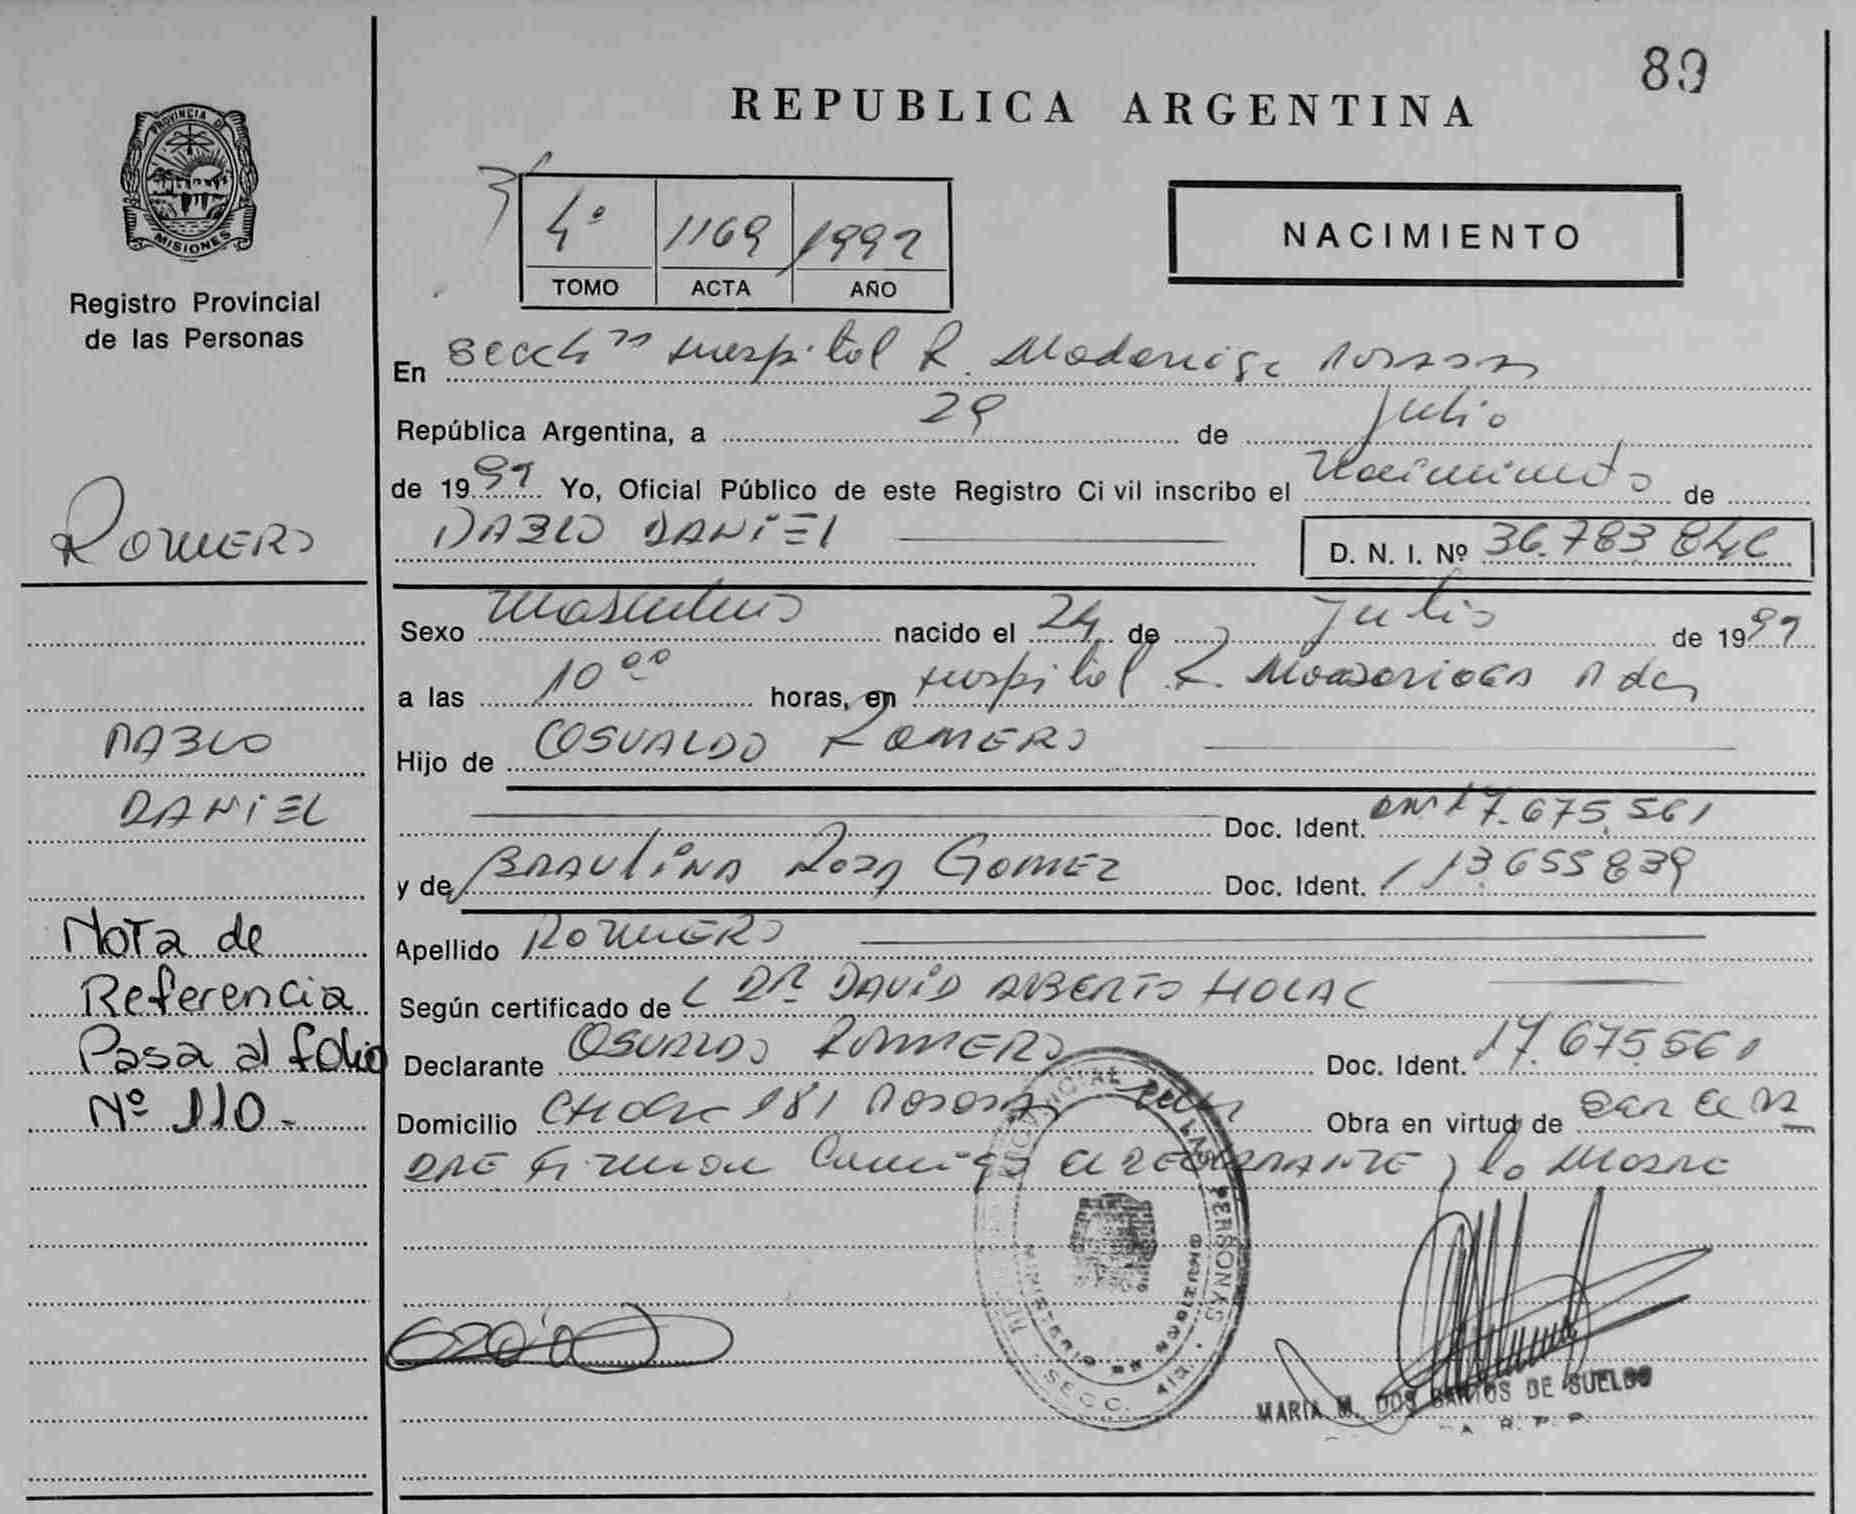 89
REPUBLICA ARGENTINA
PROVINCIA DE
MISIONES
Registro Provincial
de las Personas
4º 1169 1992
TOMO ACTA AÑO
NACIMIENTO
En Secc 4ª Hospital R. Madariaga Posadas
República Argentina, a 29 de Julio
de 1992 Yo, Oficial Público de este Registro Civil inscribo el Nacimiento de
PABLO DANIEL D. N. I. Nº 36.783.846
ROMERO
Sexo Masculino nacido el 24 de Julio de 1992
a las 10 00 horas, en Hospital R. Madariaga Pdas
Hijo de OSVALDO ROMERO
Doc. Ident. DNI 17.675.561
y de BRAULINA Rosa GOMEZ Doc. Ident. 13655839
Apellido ROMERO
Según certificado de DR. DAVID ALBERTO
Declarante OSVALDO ROMERO Doc. Ident. 17.675.561
Domicilio 181 Posadas Obra en virtud de ser el PA
DRE Firman Conmigo el DECLARANTE y la Madre
PABLO
DANIEL
Nota de
Referencia
Pasa al folio
Nº 110.-
PROVINCIAL DE LAS PERSONAS
MINISTERIO DE GOBIERNO
SECC. 4ta.
MARIA M. DOS SANTOS DE SUELDO
R. P. P.